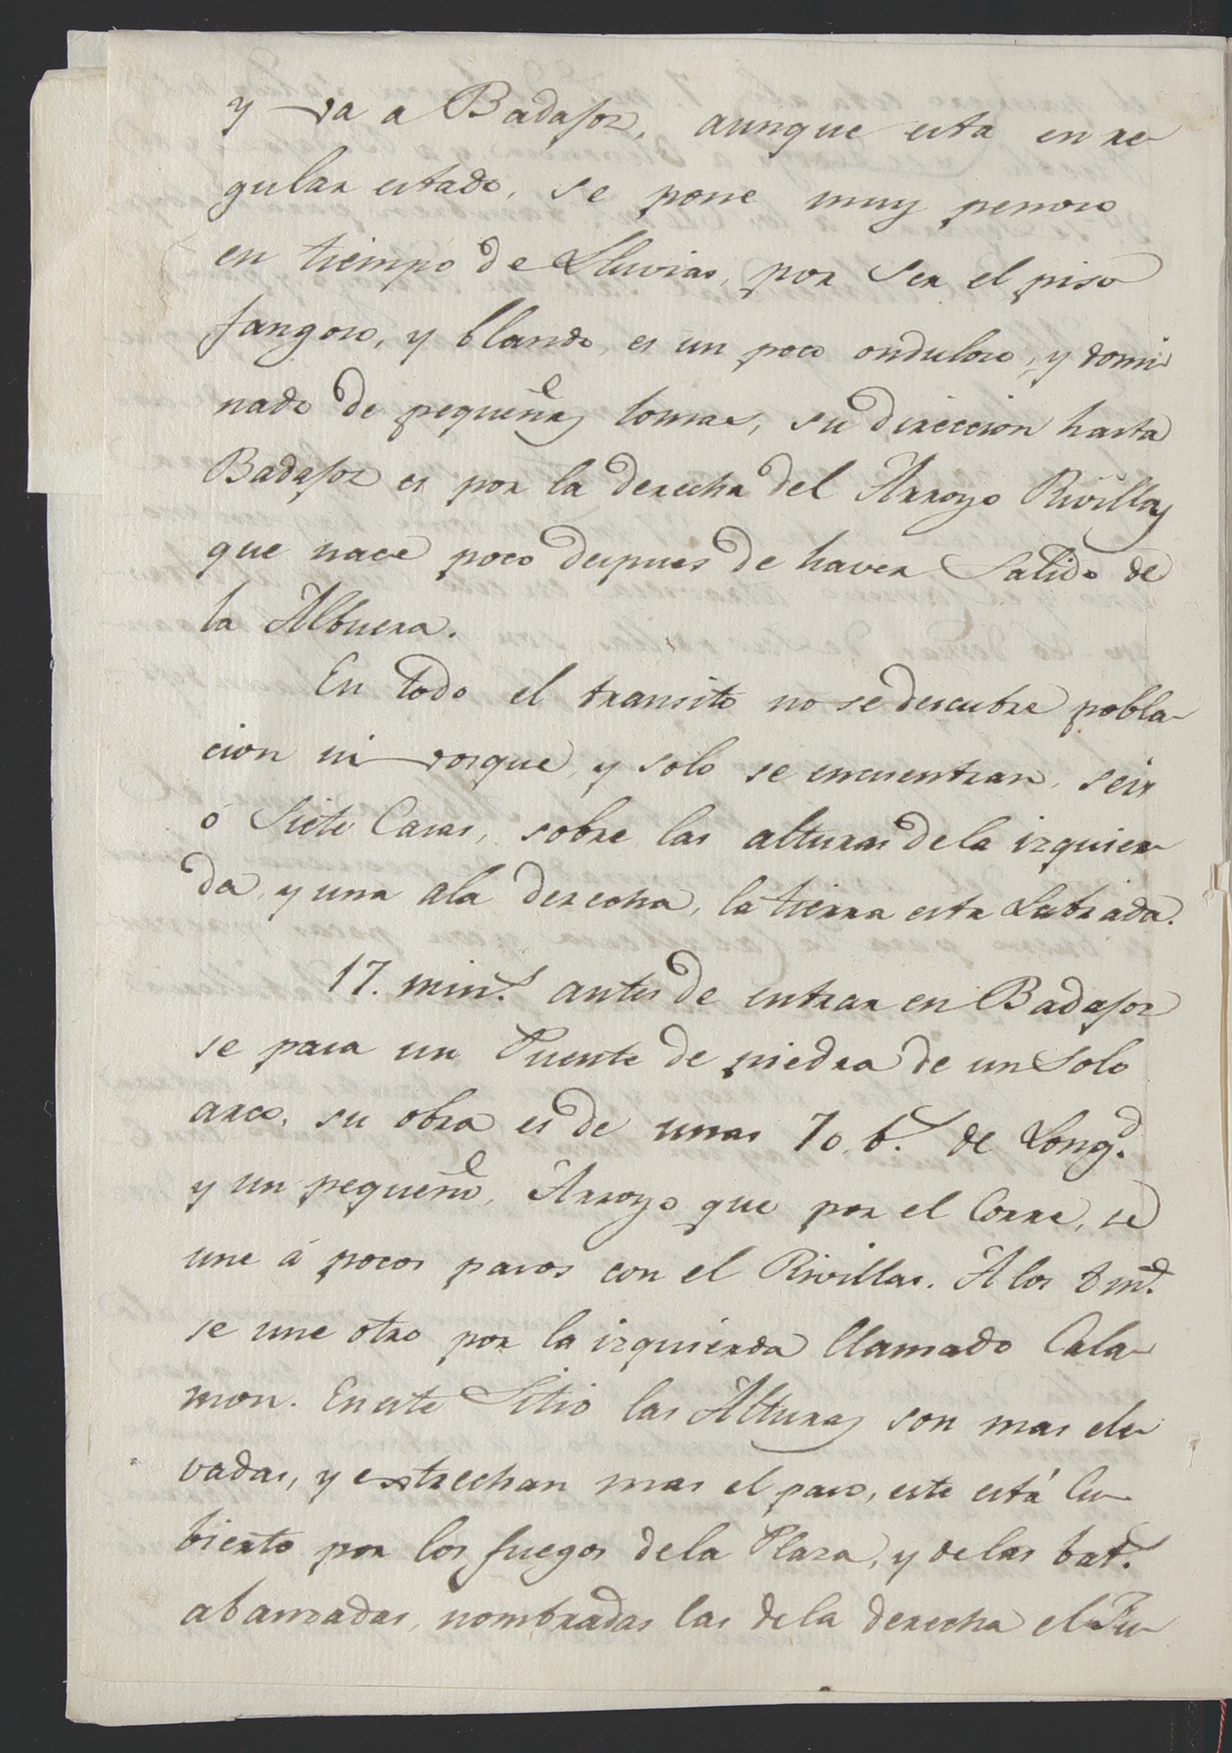 y va a Badajoz, aunque esta en re-
gular estado, se pone muy penoso
en tiempo de Lluvias, por ser el piso
fangoso, y blando, es un poco onduloso, y domi
nado de pequeñas lomas, su direccion hasta
Badajoz es por la derecha del Arroyo Rivillas
que nace poco despues de haver Salido de
la Albuera.
En todo el transito no se descubre pobla-
cion ni vosque, y solo se encuentran, seis
ó Siete Casas, sobre las alturas de la izquier-
da, y una ala derecha, la tierra esta Labrada.
17. min.s antes de entrar en Badajoz
se pasa un Puente de piedra de un Solo
arco, su obra es de unas 70. b.s de Long.d
y un pequeño, Arroyo que por el Corre, se
une á pocos pasos con el Rivillas. A los 8 m.s
se une otro por la izquierda llamado Cala-
mon. En este Sitio las Alturas son mas ele
vadas, y extrechan mas el paso, este está Cu-
bierto por los fuegos dela Plaza, y de las bat.s
abanzadas, nombradas las de la derecha el Pu-